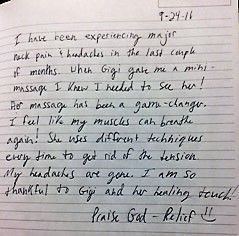 9-24-16
I have been experiencing major
neck pain & headaches in the last couple
of months. When Gigi gave me a mini-
massage I knew I needed to see her!
Her massage has been a game-changer.
I feel like my muscles can breathe
again! She uses different techniques
every time to get rid of the tension.
My headaches are gone. I am so
thankful to Gigi and her healing touch!
Praise God - Relief